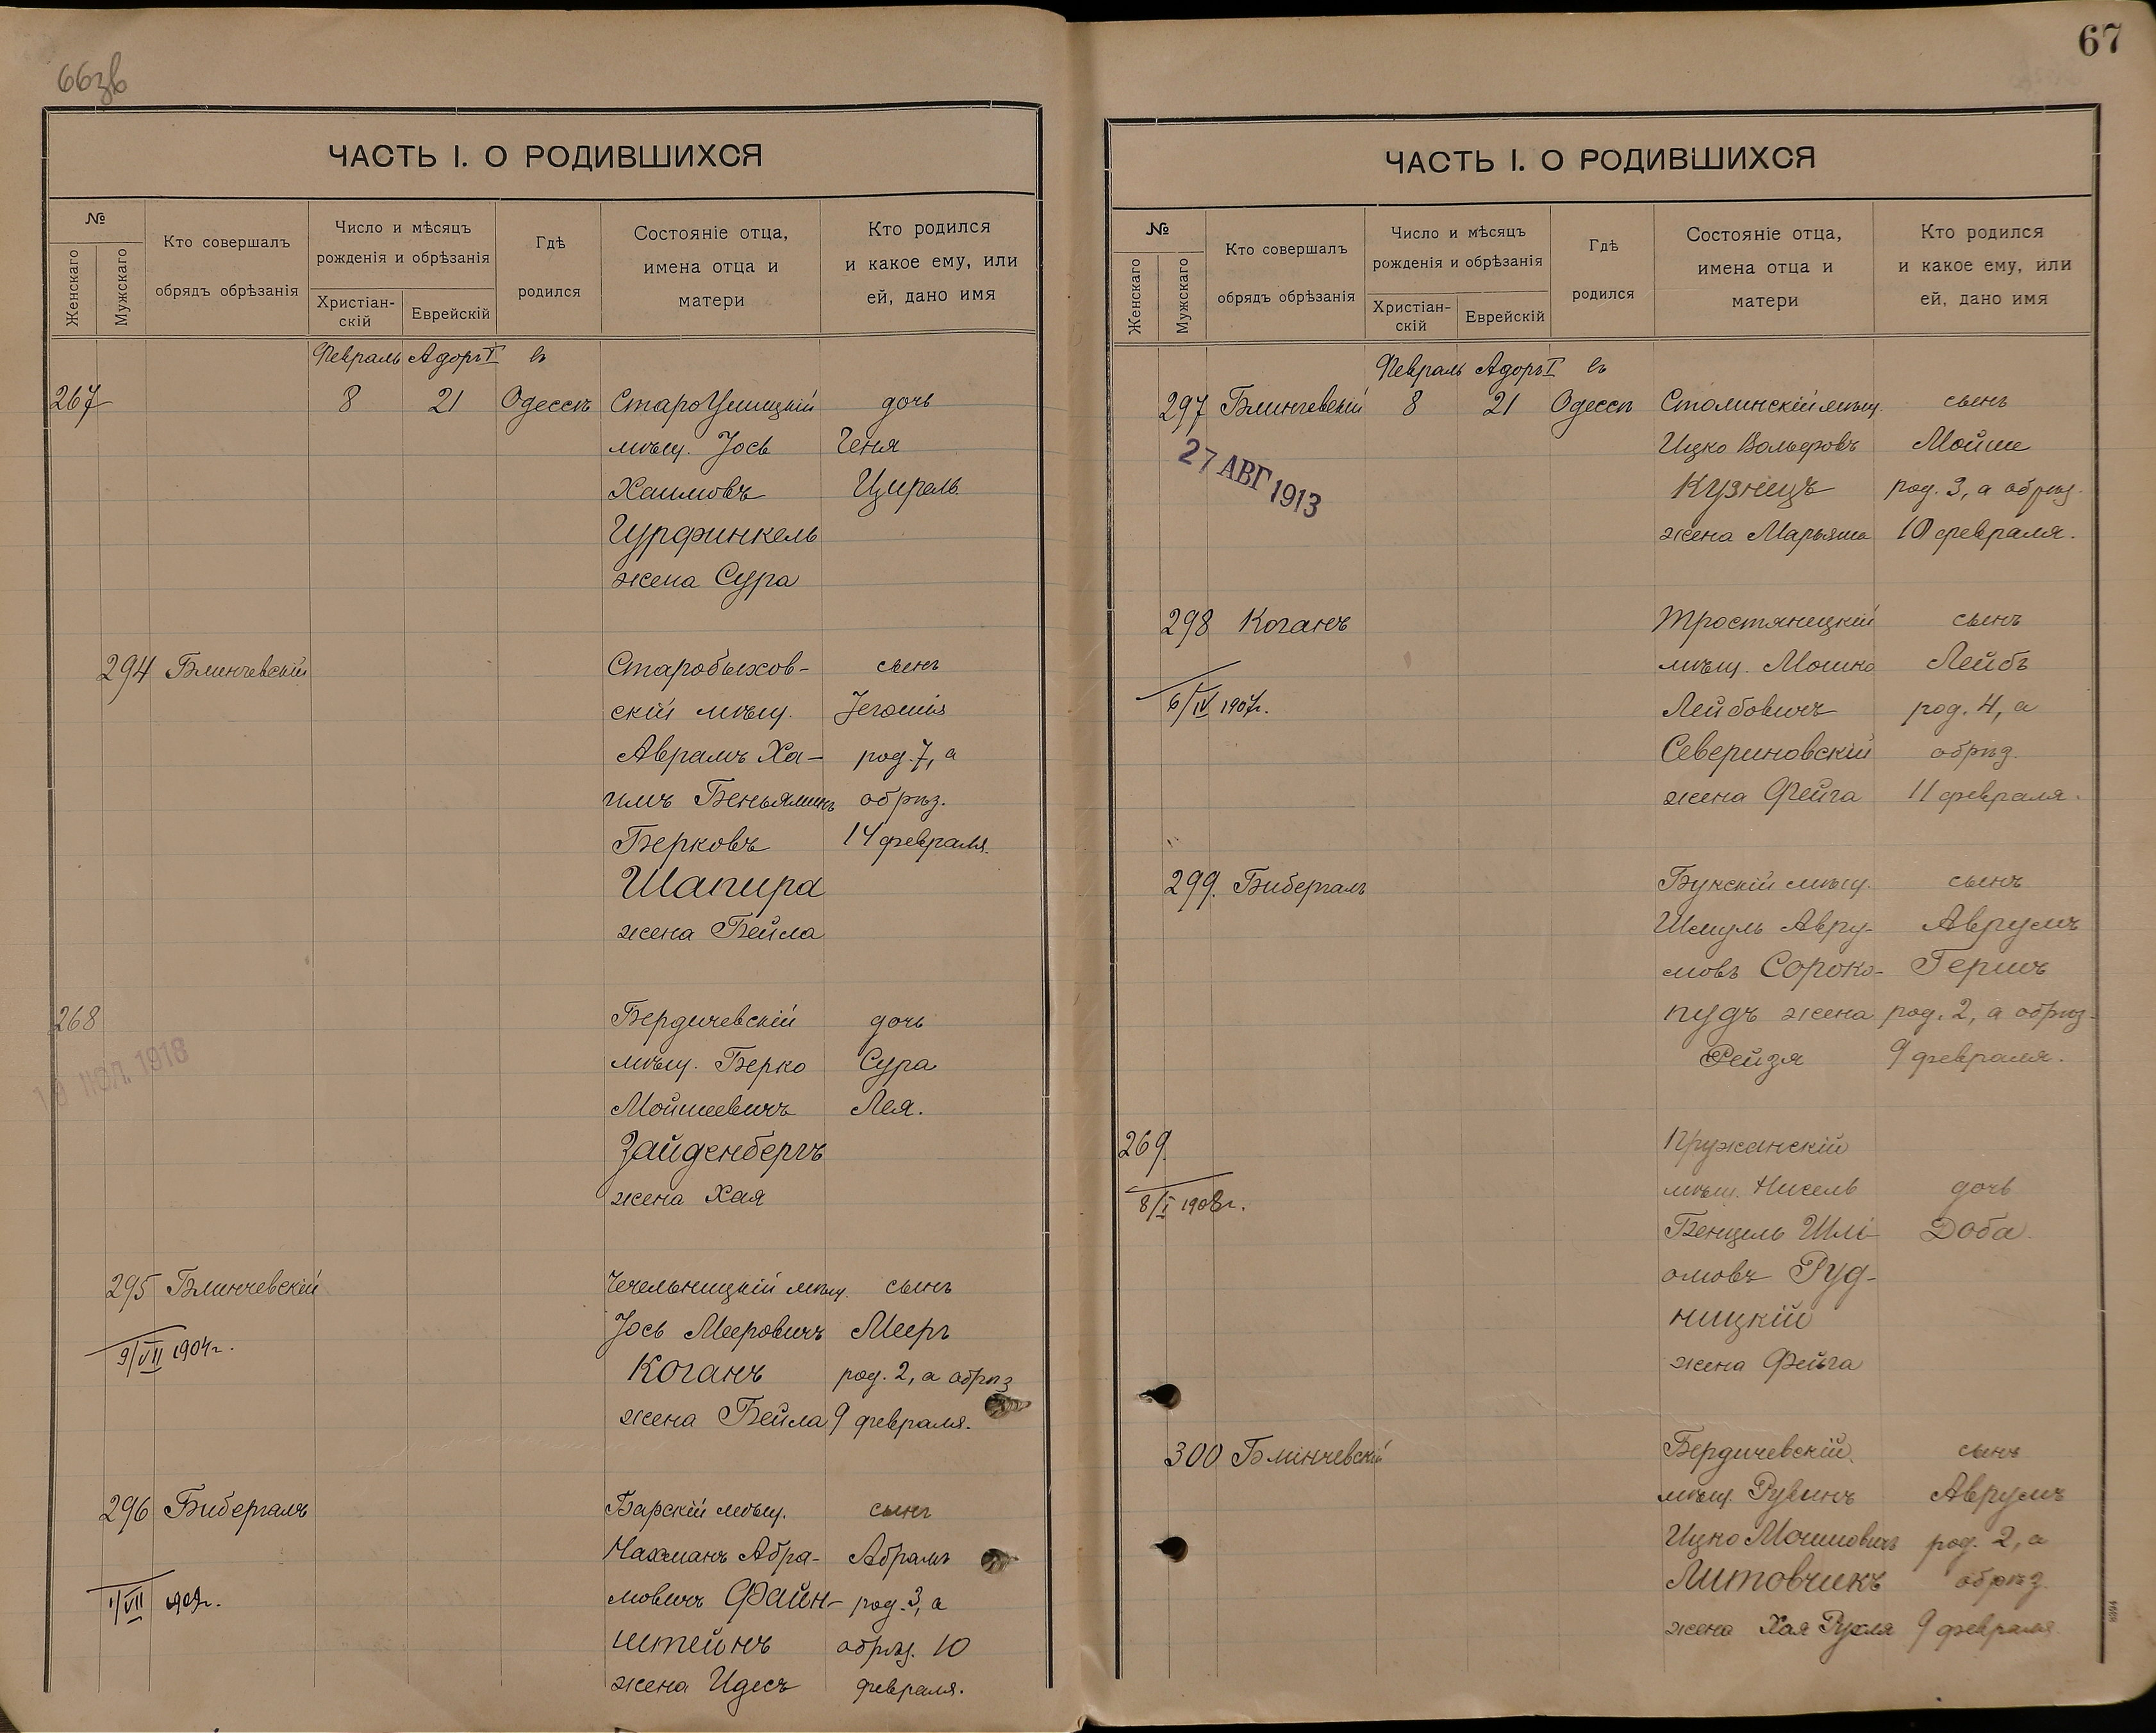 66зв
ЧАСТЬ I. О РОДИВШИХСЯ
№
Женскаго
Мужскаго
Кто совершалъ
обрядъ обрѣзанія
Число и мѣсяцъ
рожденія и обрѣзанія
Христіан-
скій
Еврейскій
Гдѣ
родился
Состояніе отца,
имена отца и
матери
Кто родился
и какое ему, или
ей, дано имя
Февраль Адоръ I въ
267 8 21 Одессѣ СтароУшицкій дочь
мѣщ. Іось Геня
Хаимовъ Цирель
Гурфинкель
жена Сура
294 Блинчевскій Старобыхов- сынъ
скій мѣщ. Іеготія
Аврамъ Ха- род. 7, а
имъ Беньяминъ обрѣз.
Берковъ 14 февраля.
Шапира
жена Бейла
268 Бердичевскій дочь
мѣщ. Берко Сура
19 ІЮЛ. 1918
Мойшеевичъ Лея.
Зайденбергъ
жена Хая
295 Блинчевскій Чечельницкій мѣщ. сынъ
9/VII 1904г. Іось Мееровичъ Мееръ
Коганъ род. 2, а обрѣз
жена Бейла 9 февраля.
296 Бибергалъ Барскій мѣщ. сынъ
Нахманъ Абра- Абрамъ
1/VII 1909г. мовичъ Файн- род. 3, а
штейнъ обрѣз. 10
жена Идесъ февраля.
67
ЧАСТЬ I. О РОДИВШИХСЯ
№
Женскаго
Мужскаго
Кто совершалъ
обрядъ обрѣзанія
Число и мѣсяцъ
рожденія и обрѣзанія
Христіан-
скій
Еврейскій
Гдѣ
родился
Состояніе отца,
имена отца и
матери
Кто родился
и какое ему, или
ей, дано имя
Февраль Адоръ I въ
297 Блинчевскій 8 21 Одессѣ Столинскій мѣщ. сынъ
27 АВГ 1913 Ицко Вольфовъ Мойше
Кузнецъ род. 3, а обрѣз.
жена Марьяша 10 февраля.
298 Коганъ Тростянецкій сынъ
мѣщ. Мошко Лейбъ
6/IV 1907г. Лейбовичъ род. 4, а
Севериновскій обрѣз.
жена Фейга 11 февраля.
299. Бибергалъ Букскій мѣщ. сынъ
Шмуль Авру- Аврумъ
мовъ Сороко- Гершъ
пудъ жена род. 2, а обрѣз.
Рейзя 9 февраля.
269. Пружанскій
8/I 1908г. мѣщ. Нисель дочь
Бенцель Шлі- Доба.
омовъ Руд-
ницкій
жена Фейга
300 Блинчевскій Бердичевскій сынъ
мѣщ. Рувинъ Аврумъ
Ицко Мошковичъ род. 2, а
Литовчикъ обрѣз.
жена Хая Рухля 9 февраля